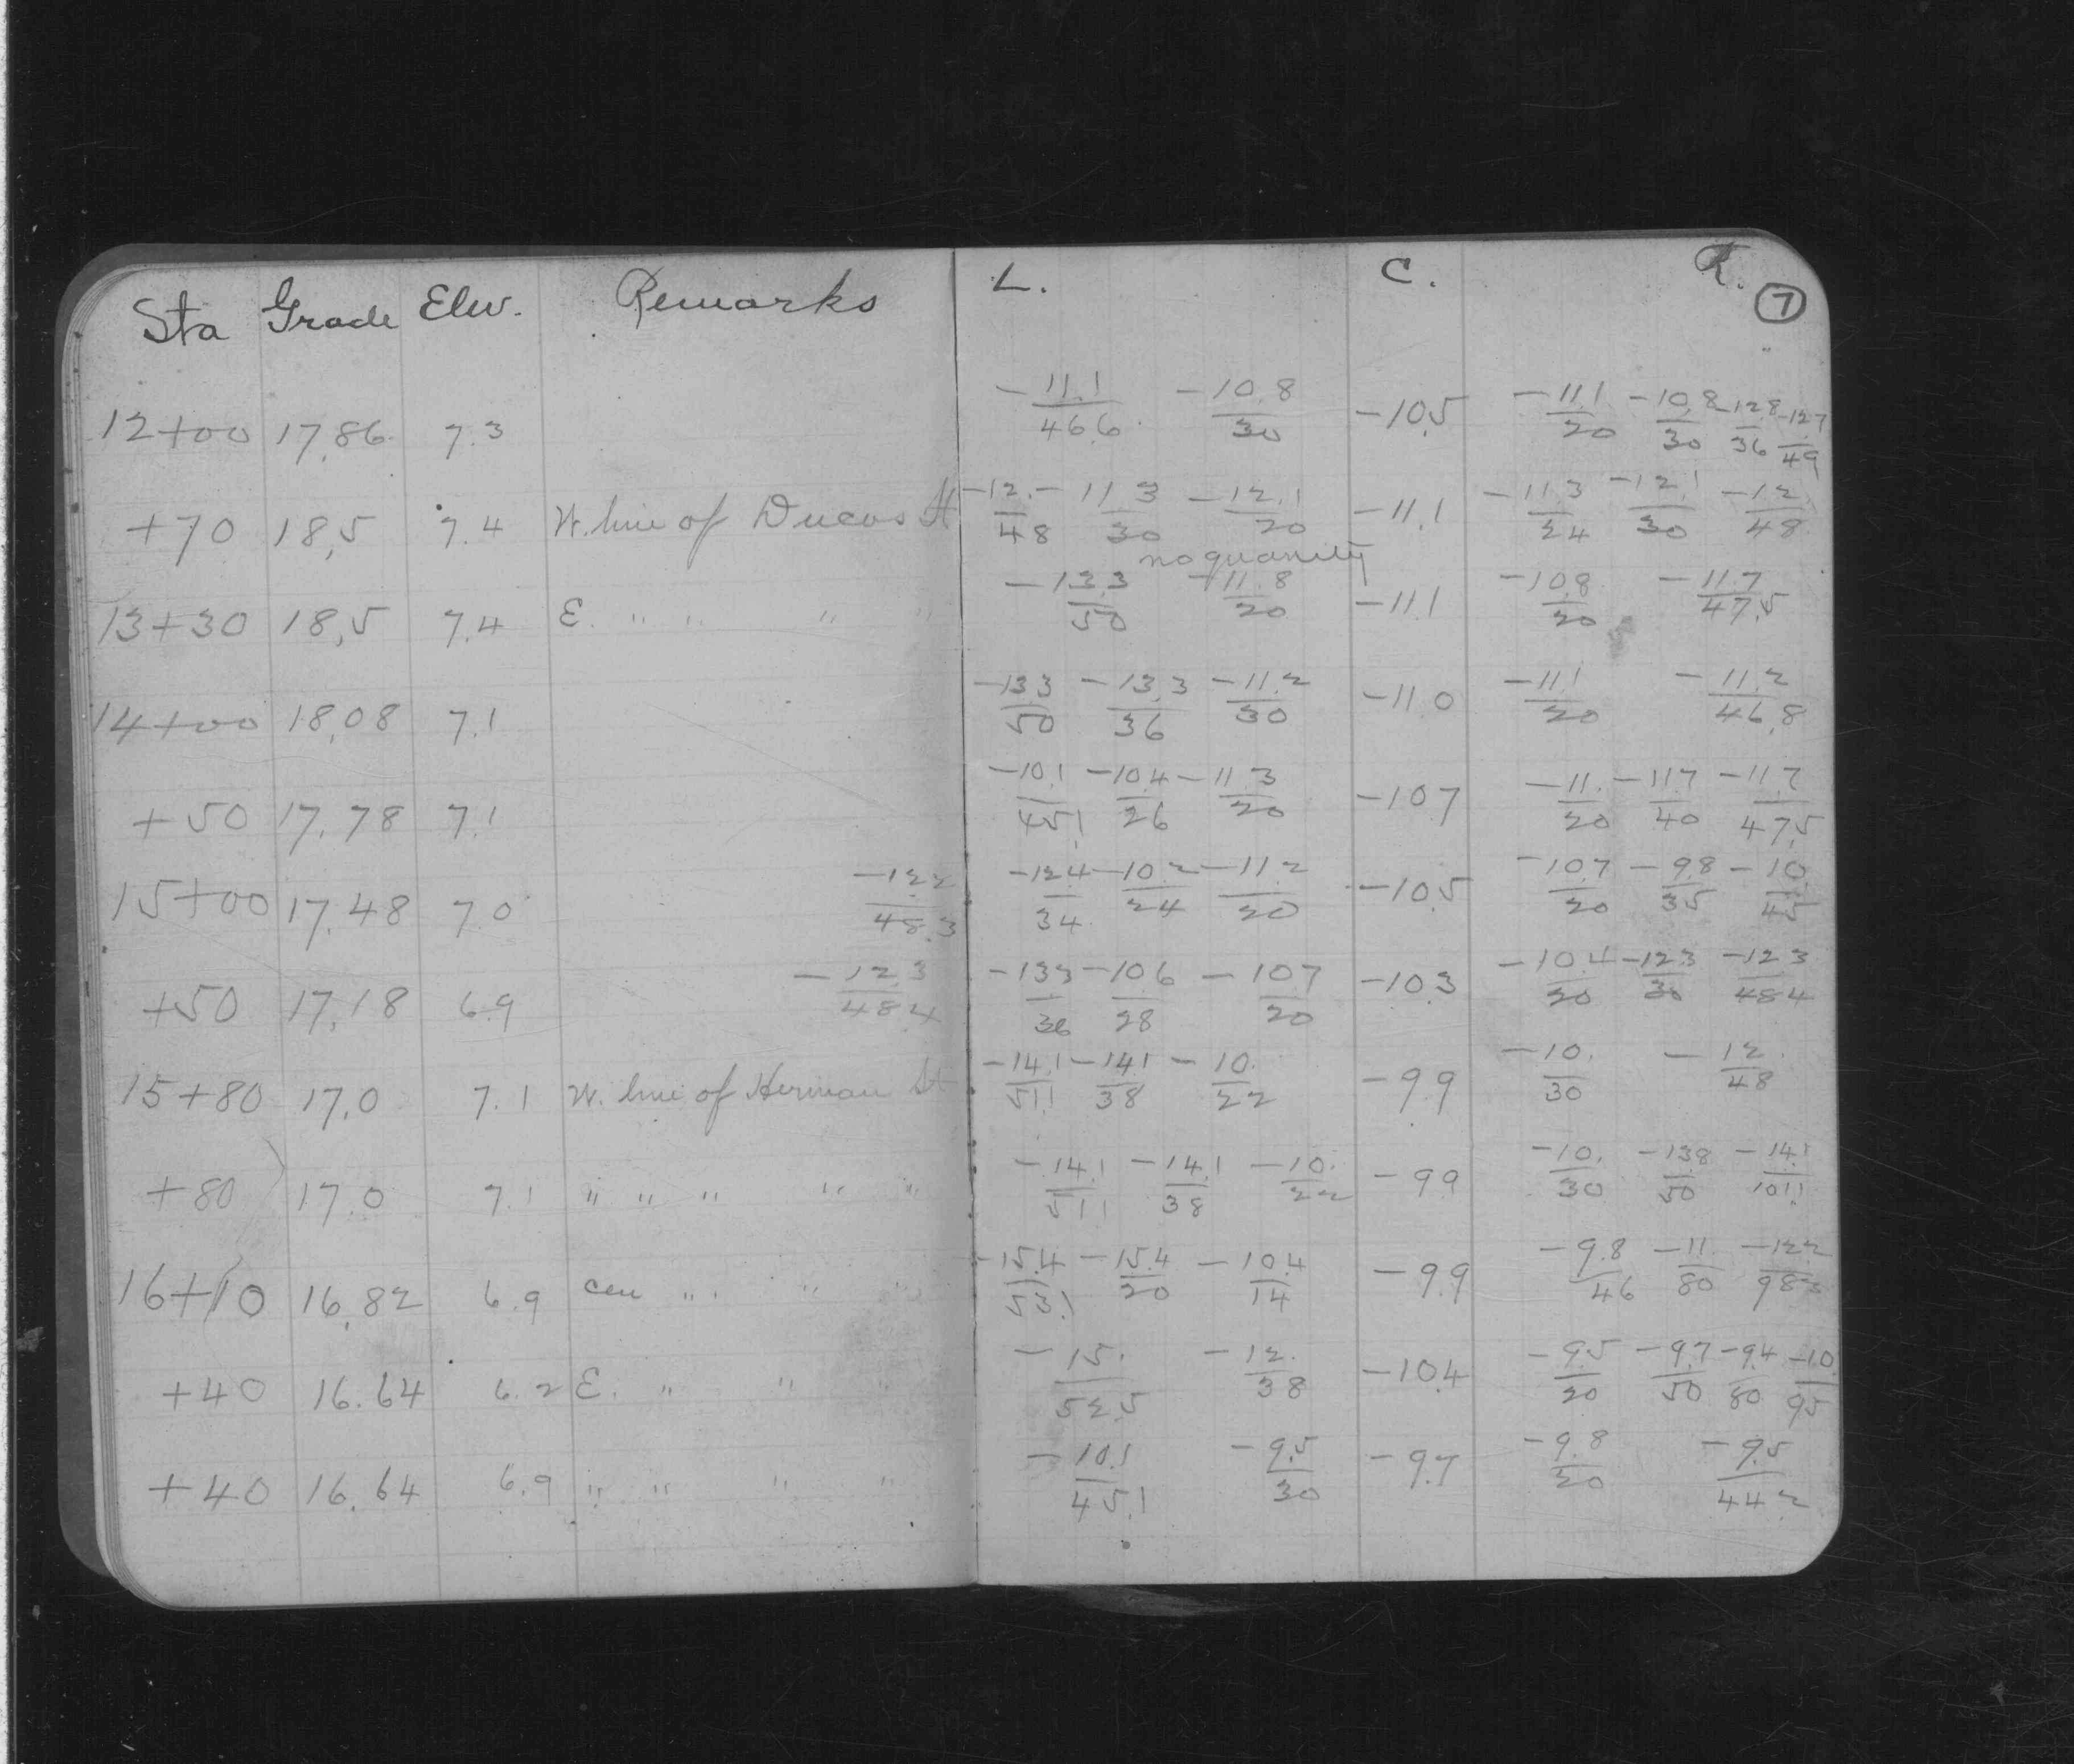 Sta Grade Elev. Remarks L. C. R. 7
12+00 17.86 7.3 -11.1/46.6 -10.8/30 -10.5 -11.1/20 -10.8/30 -12.8/36 -12.7/49
+70 18.5 7.4 W. line of Ducos St -12./48 -11.3/30 -12.1/20 -11.1 -11.3/24 -12.1/30 -12./48
no quanity
13+30 18.5 7.4 E. " " " " -13.3/50 -11.8/20 -11.1 -10.8/20 -11.7/47.5
14+00 18.08 7.1 -13.3/50 -13.3/36 -11.2/30 -11.0 -11.1/20 -11.2/46.8
+50 17.78 7.1 -10.1/45.1 -10.4/26 -11.3/20 -10.7 -11./20 -11.7/40 -11.7/47.5
15+00 17.48 7.0 -12.2/48.3 -12.4/34 -10.2/24 -11.2/20 -10.5 -10.7/20 -9.8/35 -10./45
+50 17.18 6.9 -12.3/48.4 -13.3/36 -10.6/28 -10.7/20 -10.3 -10.4/20 -12.3/30 -12.3/48.4
15+80 17.0 7.1 W. line of Herman St -14.1/51.1 -14.1/38 -10./22 -9.9 -10./30 -12./48
+80 17.0 7.1 " " " " " -14.1/51.1 -14.1/38 -10./22 -9.9 -10./30 -13.8/50 -14.1/101.1
16+10 16.82 6.9 cen " " " -15.4/53.1 -15.4/20 -10.4/14 -9.9 -9.8/46 -11./80 -12.2/98.3
+40 16.64 6.2 E. " " " -15./52.5 -12./38 -10.4 -9.5/20 -9.7/50 -9.4/80 -10./95
+40 16.64 6.9 " " " " -10.1/45.1 -9.5/30 -9.7 -9.8/20 -9.5/44.2